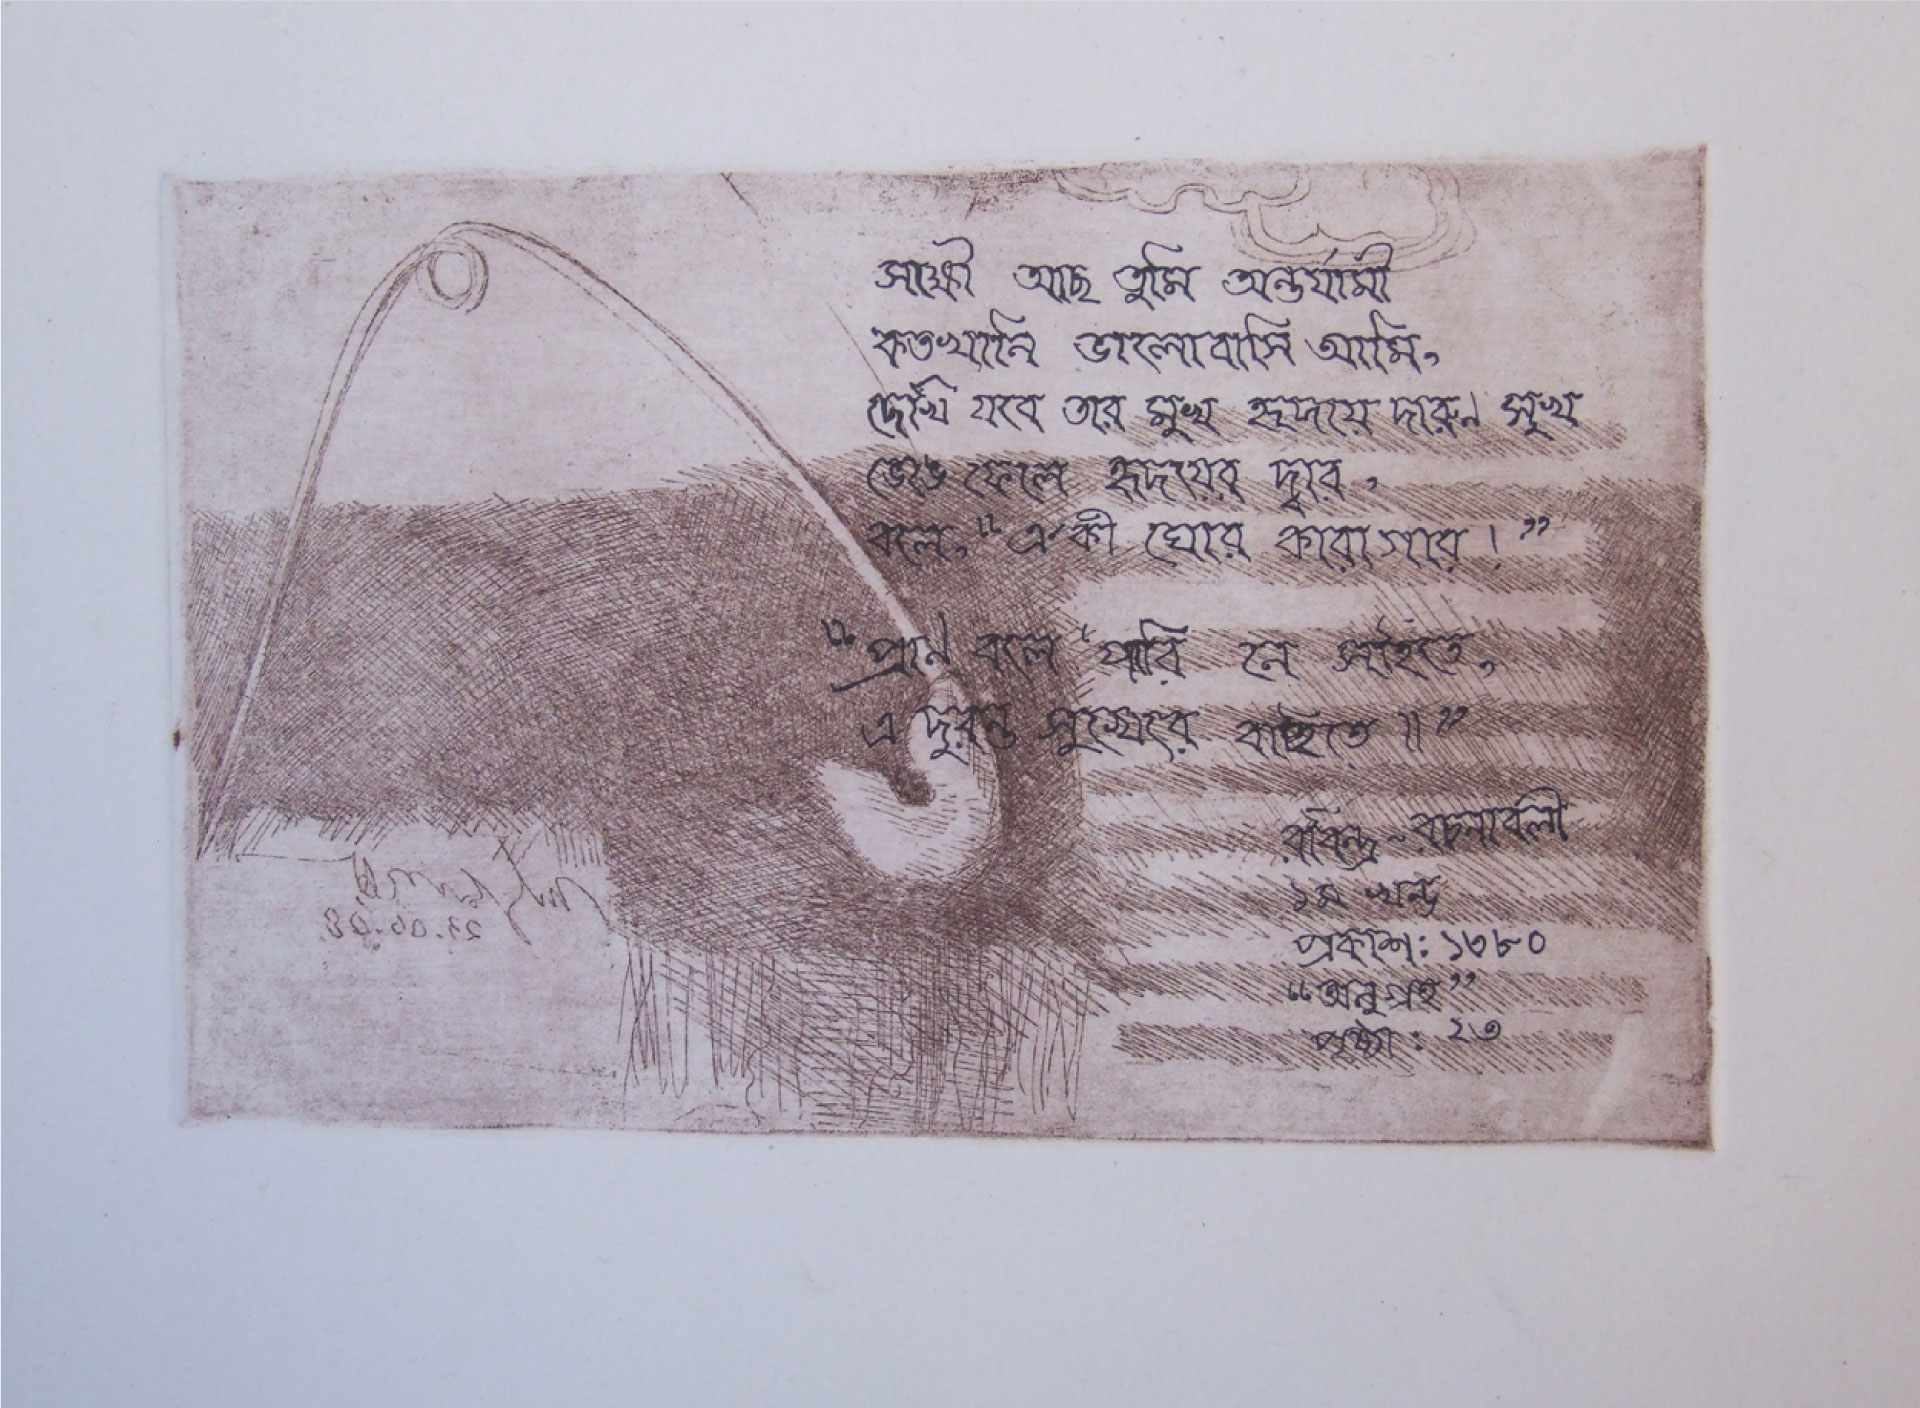 সাক্ষী আছ তুমি অন্তর্যামী
কতখানি ভালোবাসি আমি,
দেখি যবে তার মুখ হৃদয়ে দারুণ সুখ
ভেঙে ফেলে হৃদয়ের দ্বার,
বলে, “এ কী ঘোর কারাগার।”
“প্রাণ বলে ‘পারি নে সহিতে,
এ দুরন্ত সুখেরে বহিতে॥”
রবিন্দ্র-রচনাবলী
১ম খন্ড
প্রকাশ: ১৩৮০
“অনুগ্রহ”
পৃষ্ঠা: ২৩